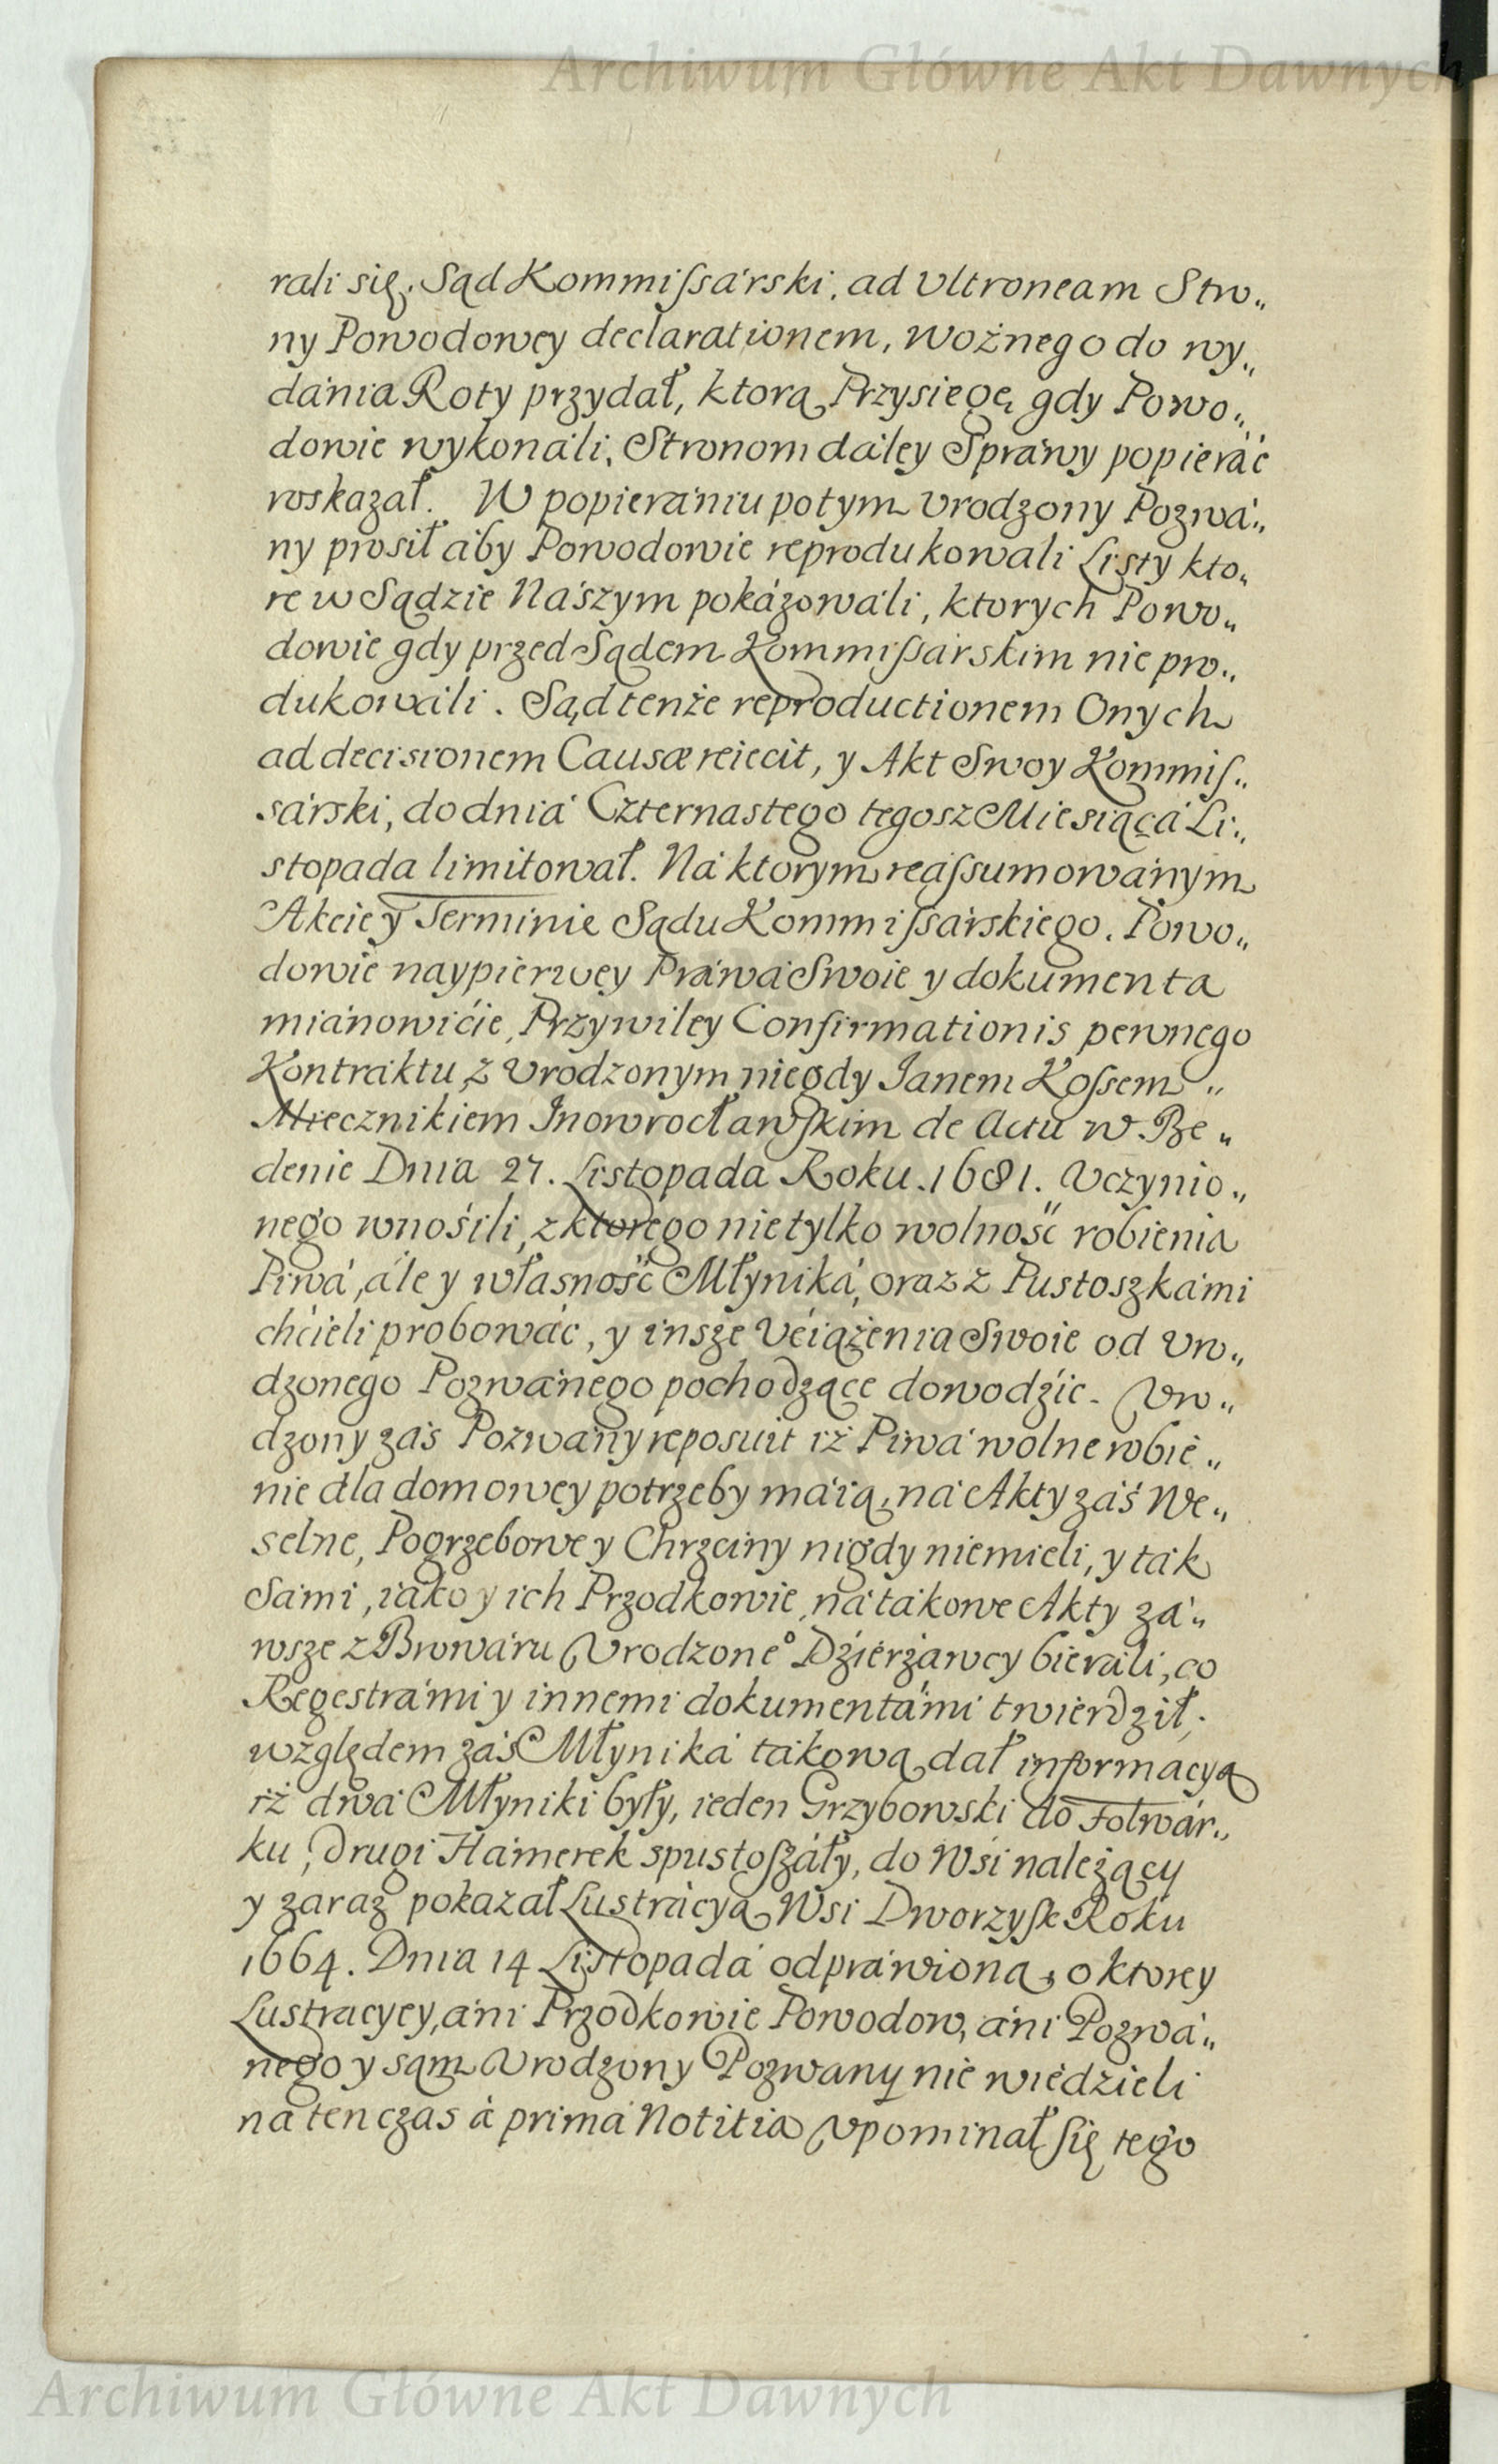 Archiwum Główne Akt Dawnych
rali się. Sąd Kommiſsárski, ad Vltroneam Stro„
ny Powodowey declarationem, Woźnego do wy„
dánia Roty przydał, ktorą Przysięgę gdy Powo„
dowie wykonáli, Stronom dáley Spráwy popieráć
roskazał. W popierániu potym Vrodzony Pozwá„
ny prosił áby Powodowie reprodukowali Listy kto„
re w Sądzie Nászym pokázowáli, ktorych Powo„
dowie gdy przed Sądem Kommiſsárskim nie pro„
dukowáli. Sąd tenże reproductionem Onych
ad decisionem Causæ reiecit, y Akt Swoy Kommiſ„
sárski, do dniá Czternastego tegosz Miesiącá Li„
stopada limitował. Ná ktorym reáſsumowánym
Akcie y Terminie Sądu Kommiſsárskiego. Powo„
dowie naypierwey Práwá Swoie y dokumenta
miánowićie, Przywiley Confirmationis pewnego
Kontraktu, z Vrodzonym niegdy Janem Koſsem „
Miecznikiem Jnowrocławſkim de Actu w Be„
denie Dnia 27. Listopada Roku. 1681. Vczynio„
nego wnośili, z ktorego nie tylko wolność robienia
Piwá, ále y własność Młyniká, oraz z Pustoszkámi
chćieli probowáć, y insze Vćiążenia Swoie od Vro„
dzonego Pozwánego pochodzące dowodźic. Vro„
dzony záś Pozwány reposuit iż Piwá wolne robie„
nie dla domowey potrzeby máią, ná Akty záś We„
selne, Pogrzebowe y Chrzciny nigdy niemieli, y ták
Sámi, iáko y ich Przodkowie, ná tákowe Akty zá„
wsze z Browáru Vrodzone° Dźierżáwcy bieráli, co
Regestrámi y innemi dokumentámi twierdził,
względem záś Młyniká tákową dał informacyą
iż dwá Młyniki były, ieden Grzybowski do Folwár„
ku, drugi Hámerek spustoſzáły, do Wśi należący
y zaraz pokazał Lustrácyą Wsi Dworzyſk Roku
1664. Dnia 14 Listopadá odpráwioną, o ktorey
Lustracyey, áni Przodkowie Powodow, áni Pozwá„
nego y sąm Vrodzony Pozwany nie wiedzieli
ná ten czas á prima Notitia Vpominał ſię tego
Archiwum Główne Akt Dawnych